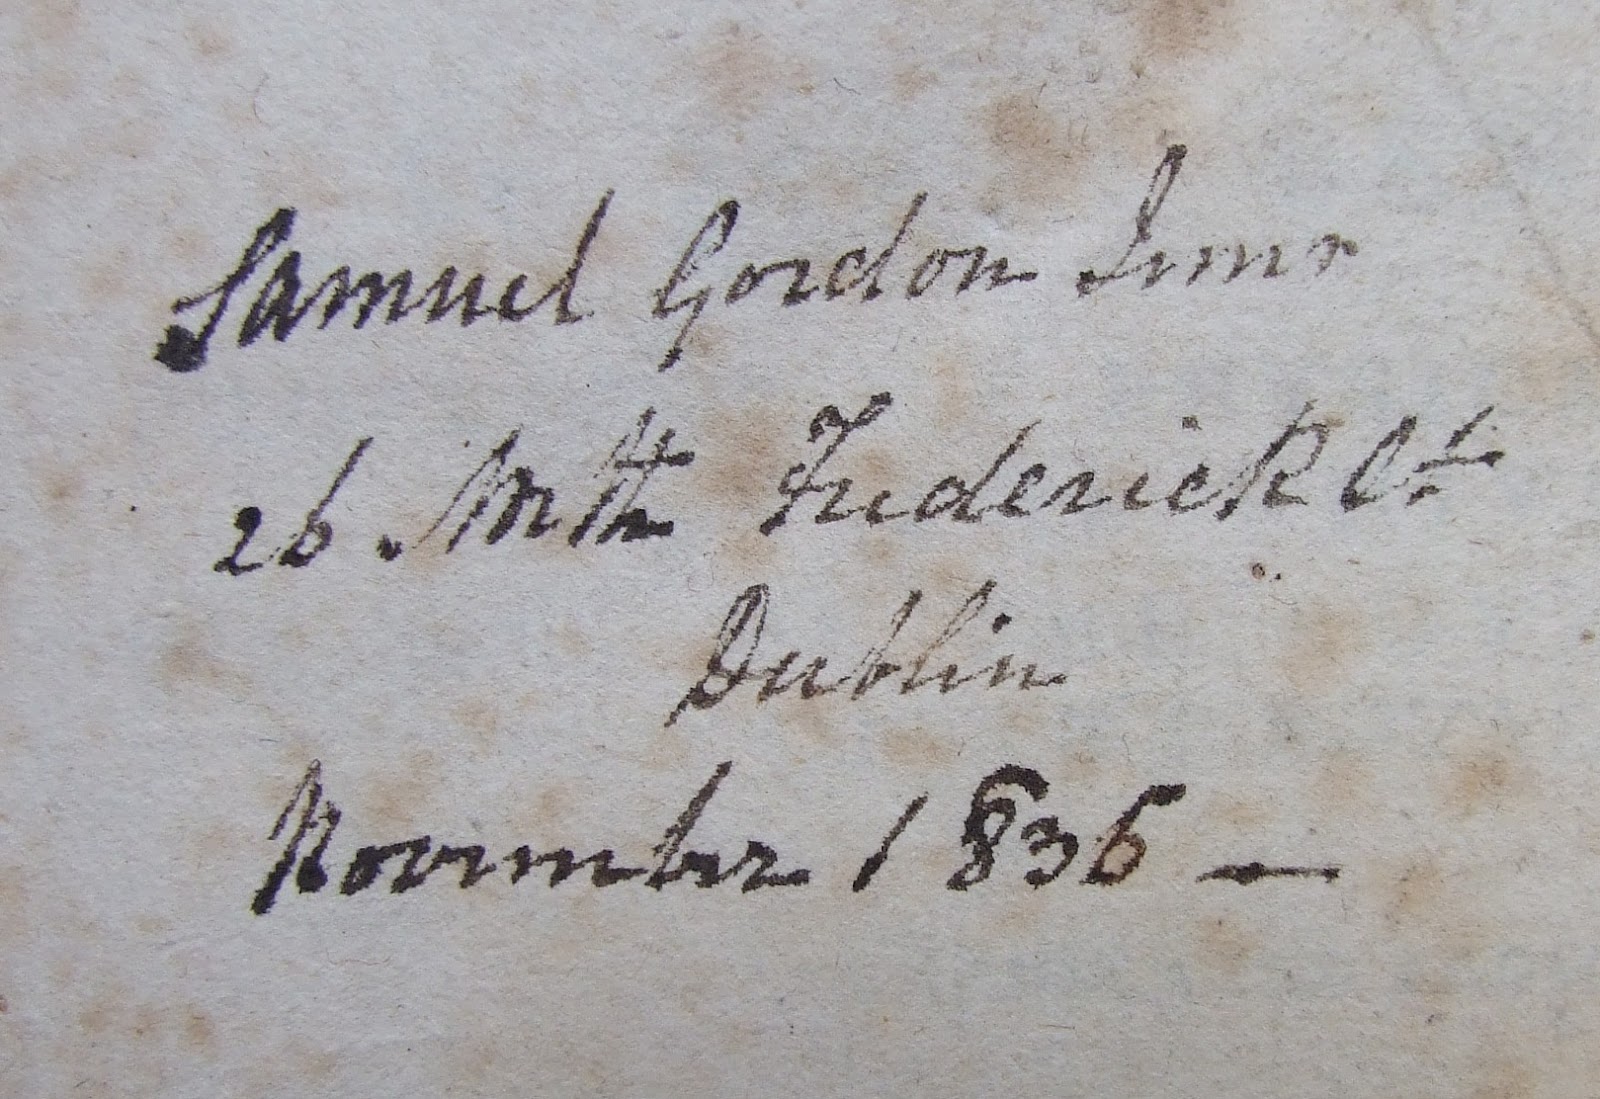 Samuel Gordon Junr
26 North Frederick St
Dublin
November 1836 —